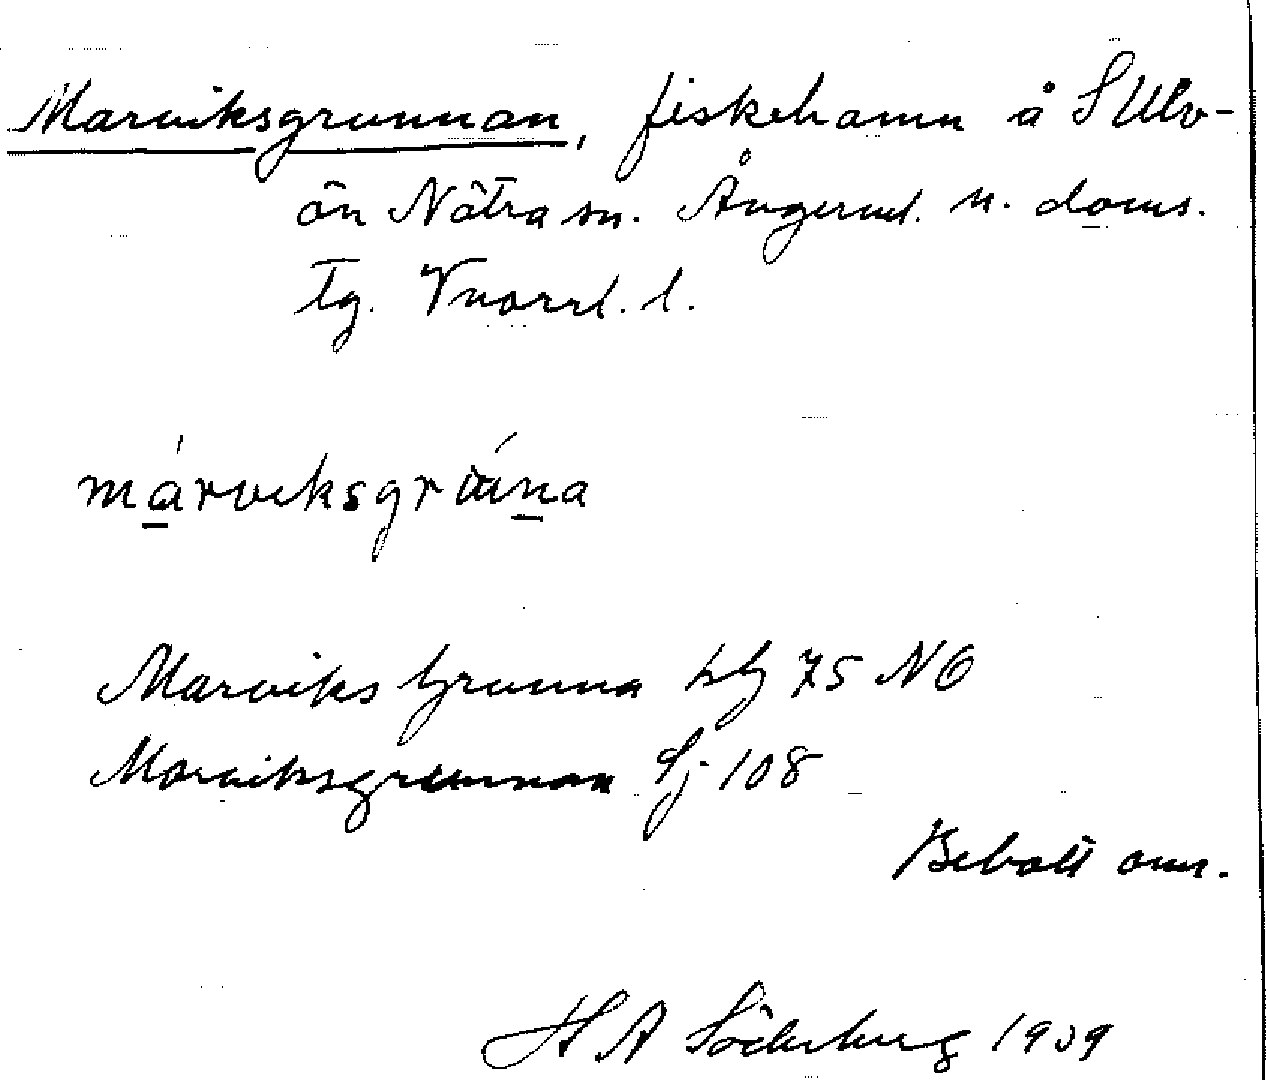 Marviksgrunnan, fiskehamn å S Ulv-
ön Nätra sn. Ångerml. n. doms.
tg. Vnorrl. l.
márviksgrúna
Marviks Grunna hbl 75 NO
Marviksgrunnan Sj 108
Bebott omr.
H A Söderberg 1939